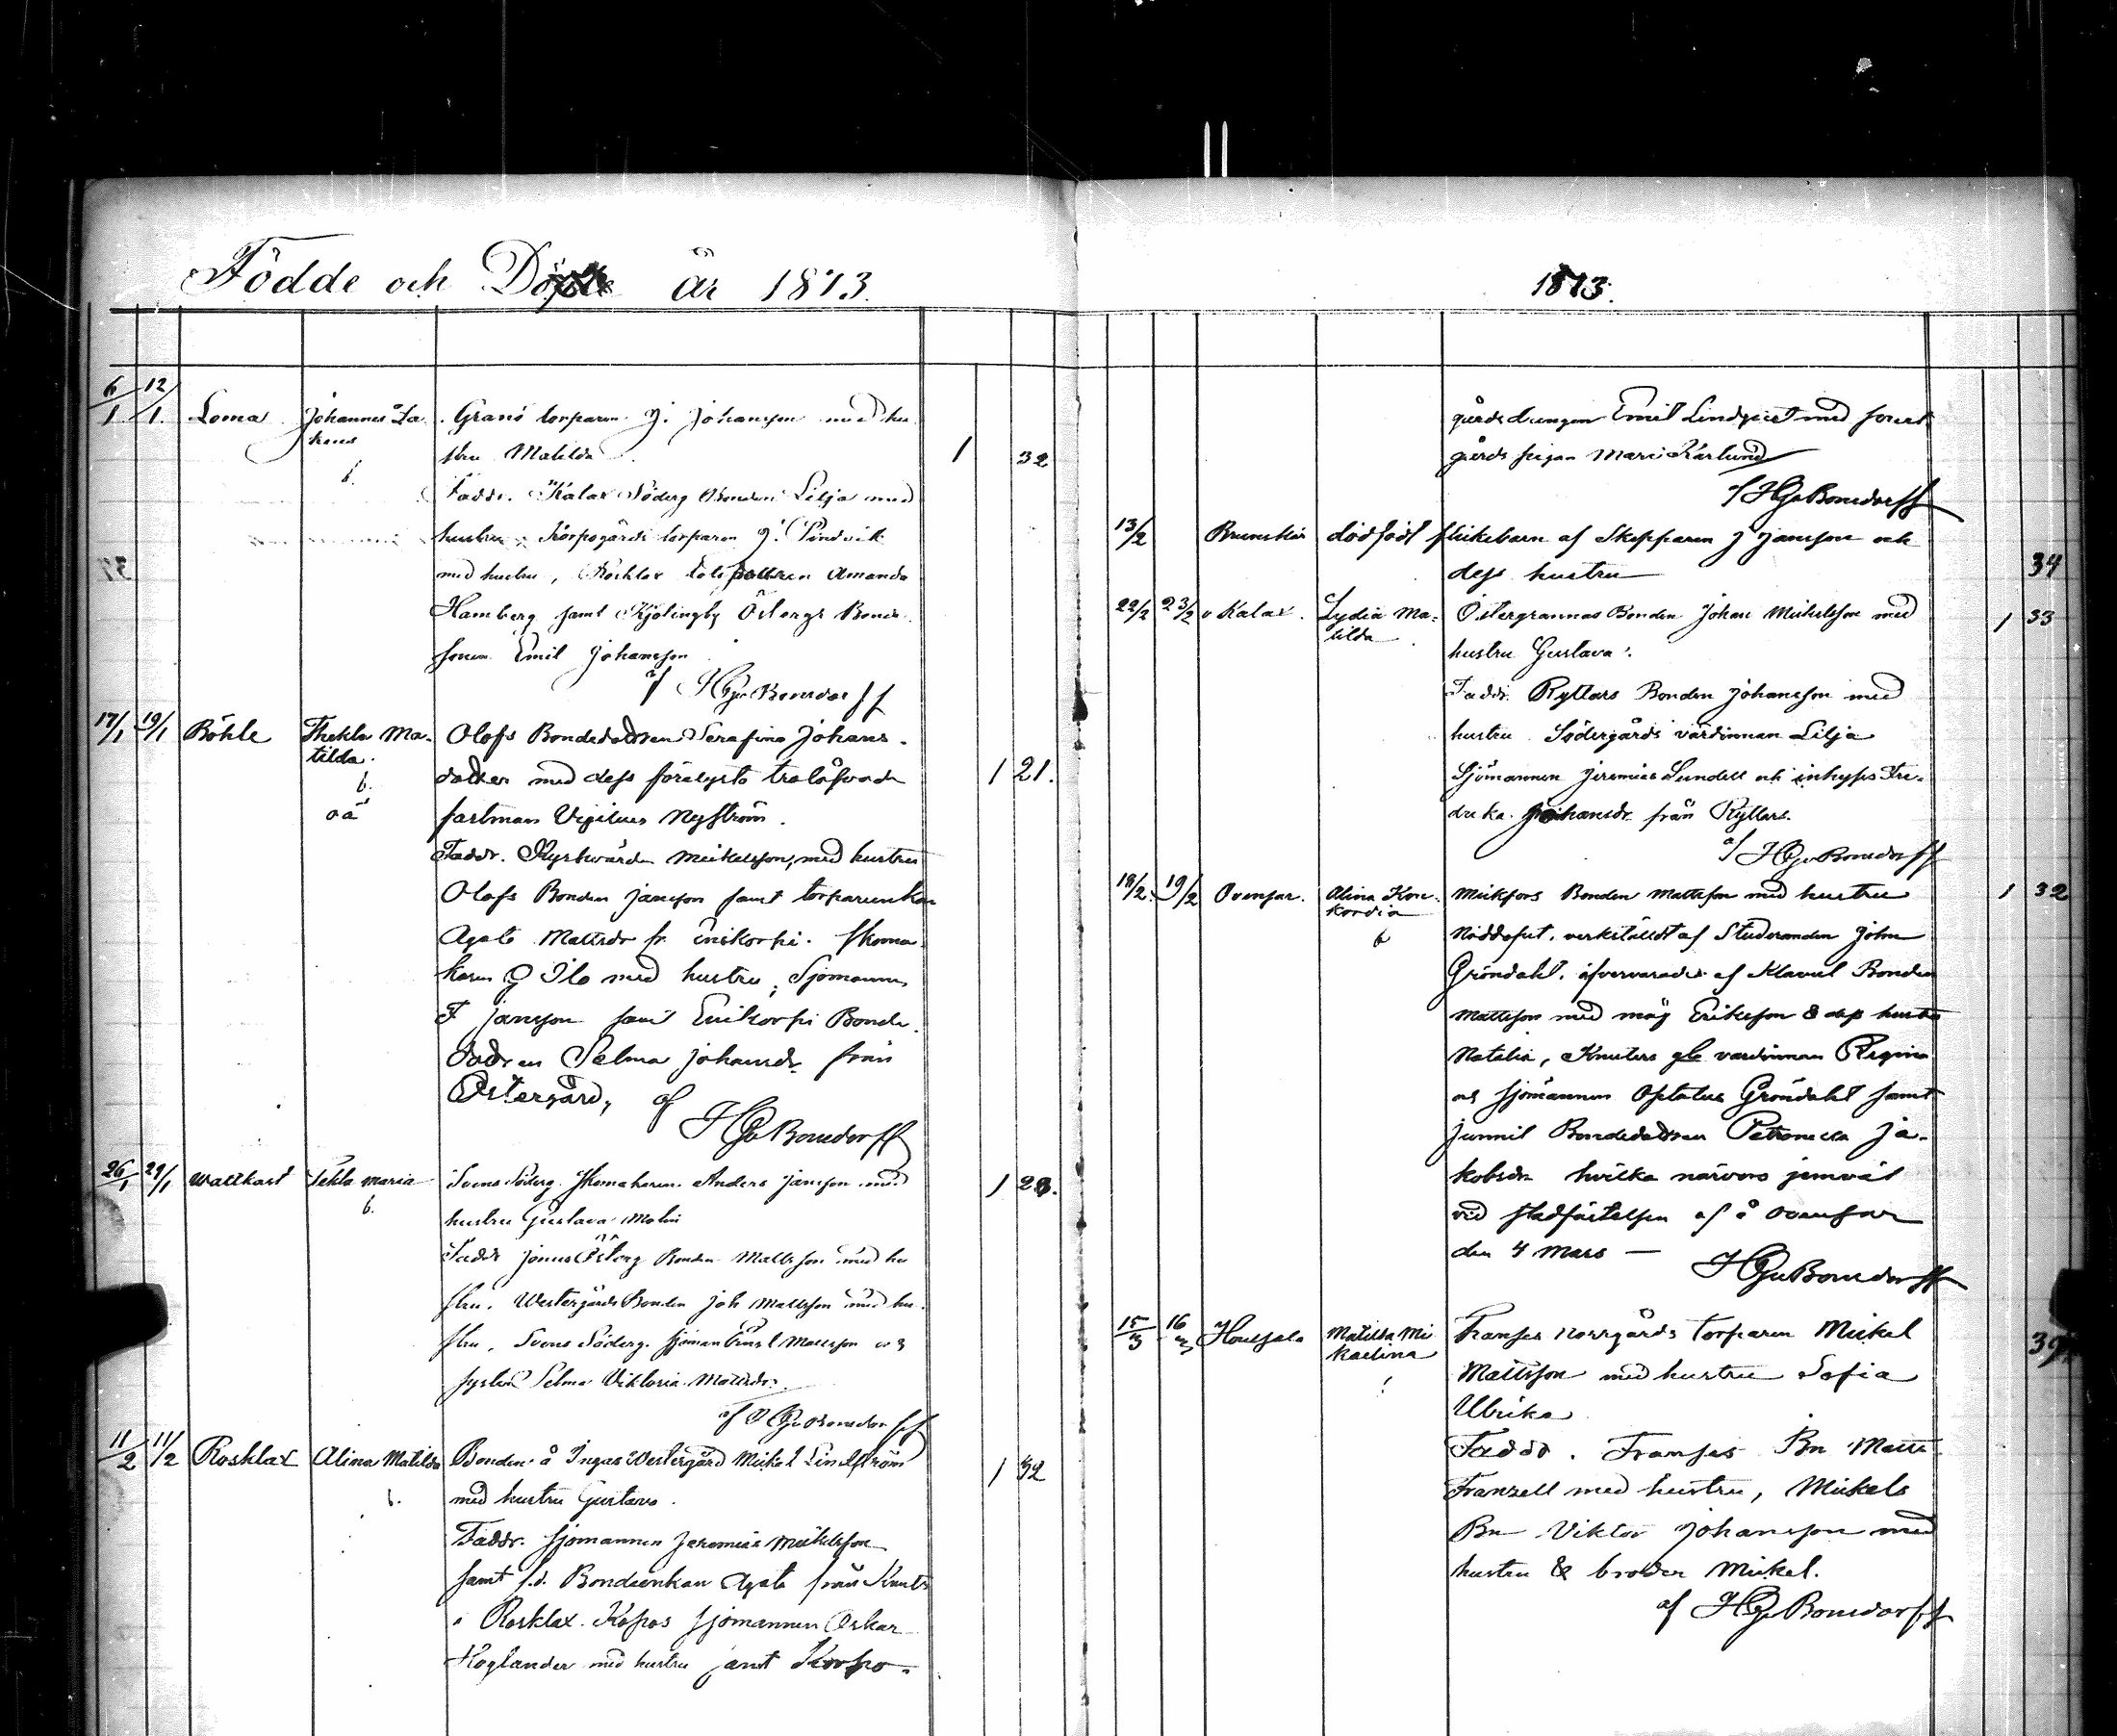 Födde och Döpte år 1873.
6/1 12/1 Loma Johannes Za- Granö torparen J. Johansson med hu-
stru Matilda 1 32
b.
Faddr. Kalax Söderg Bonden Lilja med
hustru, Korpogårds torparen J. Sindvik
med hustru, Rosklax Amanda
Hamberg samt Kjölingby Österg: Bonde-
sonen Emil Johansson
af HGvBonsdorff
17/1 19/1 Böhle Thekla Ma- Olofs Bondedottren Serafina Johans-
tilda. dotter med dess förelysta trolåfvade 1 21.
b.
oä fästman Vigilius Nyström.
Faddr. Kyrkvärden Mickelsson, med hustru
Olofs Bonden Jansson samt torparenkan
Agata Mattsdr fr. Eniskorpi. Skoma-
karen Ilo med hustru, Sjömannen
F Jansson samt Bonde-
dottren Selma Johansdr från
Östergård, af
HGvBonsdorff
26/1 29/1 Wattkast Tekla Maria Svens Söderg. Skomakaren Anders Jansson med 1 28.
b. hustru Gustava Malin
Faddr Jonus Österg Bonden Mattsson med hu-
stru, Westergårds Bonden Joh Mattsson med hu-
stru, Svens Söderg. sjöman Ernst Mattsson och
syster Selma Viktoria Mattsdr.
af HGvBonsdorff
11/2 11/2 Rosklax Alina Matilda Bonden å Ingas Westergård Mickel Lindström 1 32
b. med hustru Gustava.
Faddr. sjömannen Jeremias Mickelsson
samt f.d. Bondeenkan Agata från Knuts
i Rosklax. Korpos sjömannen Oskar
Höglander med hustru samt Korpo-
1873.
gårds drengen Emil Lindqvist med
gårds pigan Maria Karlund
af HGvBonsdorff
13/2 Brunskär dödfödt flickebarn af Skepparen J Jansson och
dess hustru 34
22/2 23/2 Kalax. Lydia Ma- Östergrannas Bonden Johan Mickelsson med 1 33
tilda hustru Gustava.
Faddr. Ryttars Bonden Johansson med
hustru Södergårds värdinnan Lilja
Sjömannen Jeremias Sundell och inhyses Fre-
drika Johansdr från Ryttars.
af HGvBonsdorff
18/2 19/2 Ovensor. Alina Kon- Mickfors Bonden Mattsson med hustru 1 32
kordia
b Nöddopet verkstäldt af Studeranden John
Gröndahl, öfvervarades af Bonden
Mattsson med måg Eriksson & dess hustru
Natalia, Knuters gla värdinnan Regina
och sjömannen Optatus Gröndahl samt
Bondedottren Petronella Ja-
kobsdr hvilka närvoro jemväl
vid stadfästelsen af å Ovensor
den 4 Mars —
HGvBonsdorff
15/3 16/3 Houtsala Matilda Mi- Franses Norrgårds torparen Mickel 39
kaelina Mattsson med hustru Sofia
Ulrika
Faddr. Franses Bn Matts
Franzell med hustru, Mickels
Bn Viktor Johansson med
hustru & broder Mickel.
af HGvBonsdorff